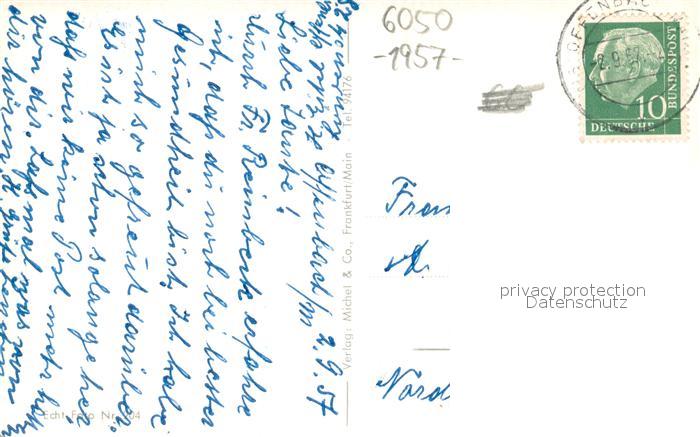 6050
-1957-
OFFENBACH
-2.9.57
10
DEUTSCHE
BUNDESPOST
Offenbach/M 2.9.57
Liebe Tante!
durch Fr. Reinberte erfahre
ich, daß du noch bei bester
Gesundheit bist, Ich habe
mich so gefreut darüber.
es ist ja schon solange her
daß wir keine Post mehr
von dir. Laß mal was von
dir hören.
Verlag: Michel & Co., Frankfurt/Main · Tel. 94176
Echt Foto Nr. 204
Frau
Nord
privacy protection
Datenschutz